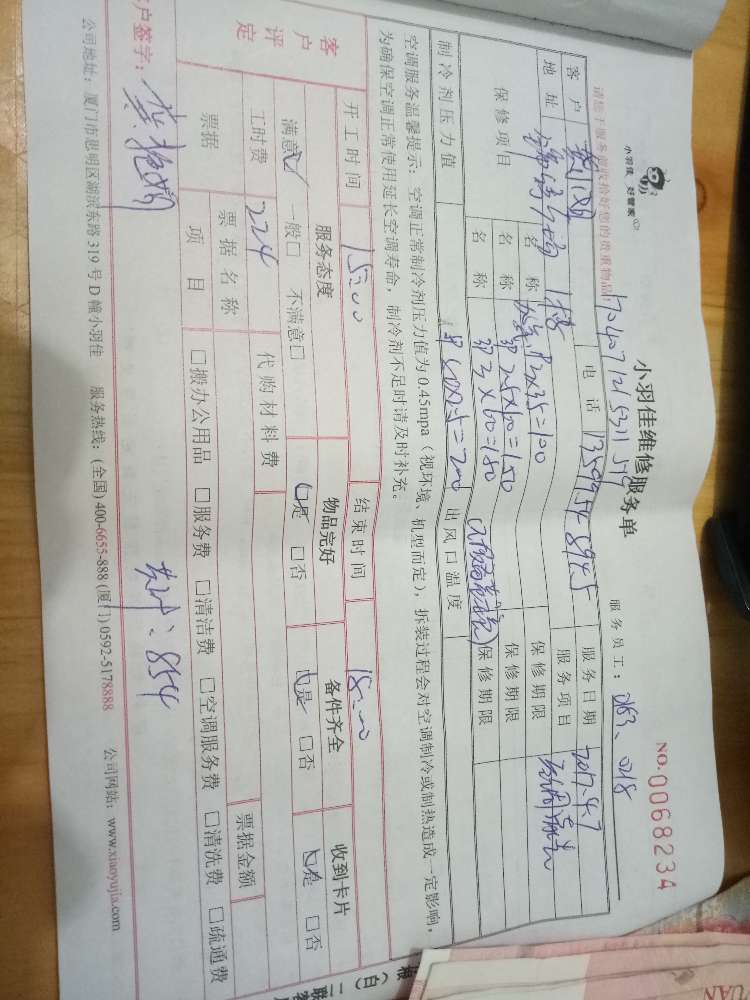 小羽佳 好管家
小羽佳维修服务单
NO.0068234
请您于服务前收捡好您的贵重物品!
服务员工: 063、018
客户 电话 服务日期 2017.4.7
地址 1楼 服务项目
保修项目 名称 2×35=100 保修期限
名称 25×60=150 保修期限
名称 3×60=180 保修期限
制冷剂压力值 =200 出风口温度
空调服务温馨提示: 空调正常制冷剂压力值为0.45mpa(视环境、机型而定), 拆装过程会对空调制冷或制热造成一定影响,
为确保空调正常使用延长空调寿命, 制冷剂不足时请及时补充。
客户评定
开工时间 15:00 结束时间 18:00
服务态度 物品完好 备件齐全 收到卡片
满意☑ 一般□ 不满意□ ☑是 □否 ☑是 □否 ☑是 □否
工时费 224 代购材料费
票据 票据名称 票据金额
项目 □搬办公用品 □服务费 □清洁费 □空调服务费 □清洗费 □疏通费
客户签字: 共计: 854
公司地址: 厦门市思明区湖滨东路319号D幢小羽佳 服务热线: (全国)400-6655-888 (厦门)0592-5178888 公司网站: www.xiaoyujia.com
(白)二联客
UAN